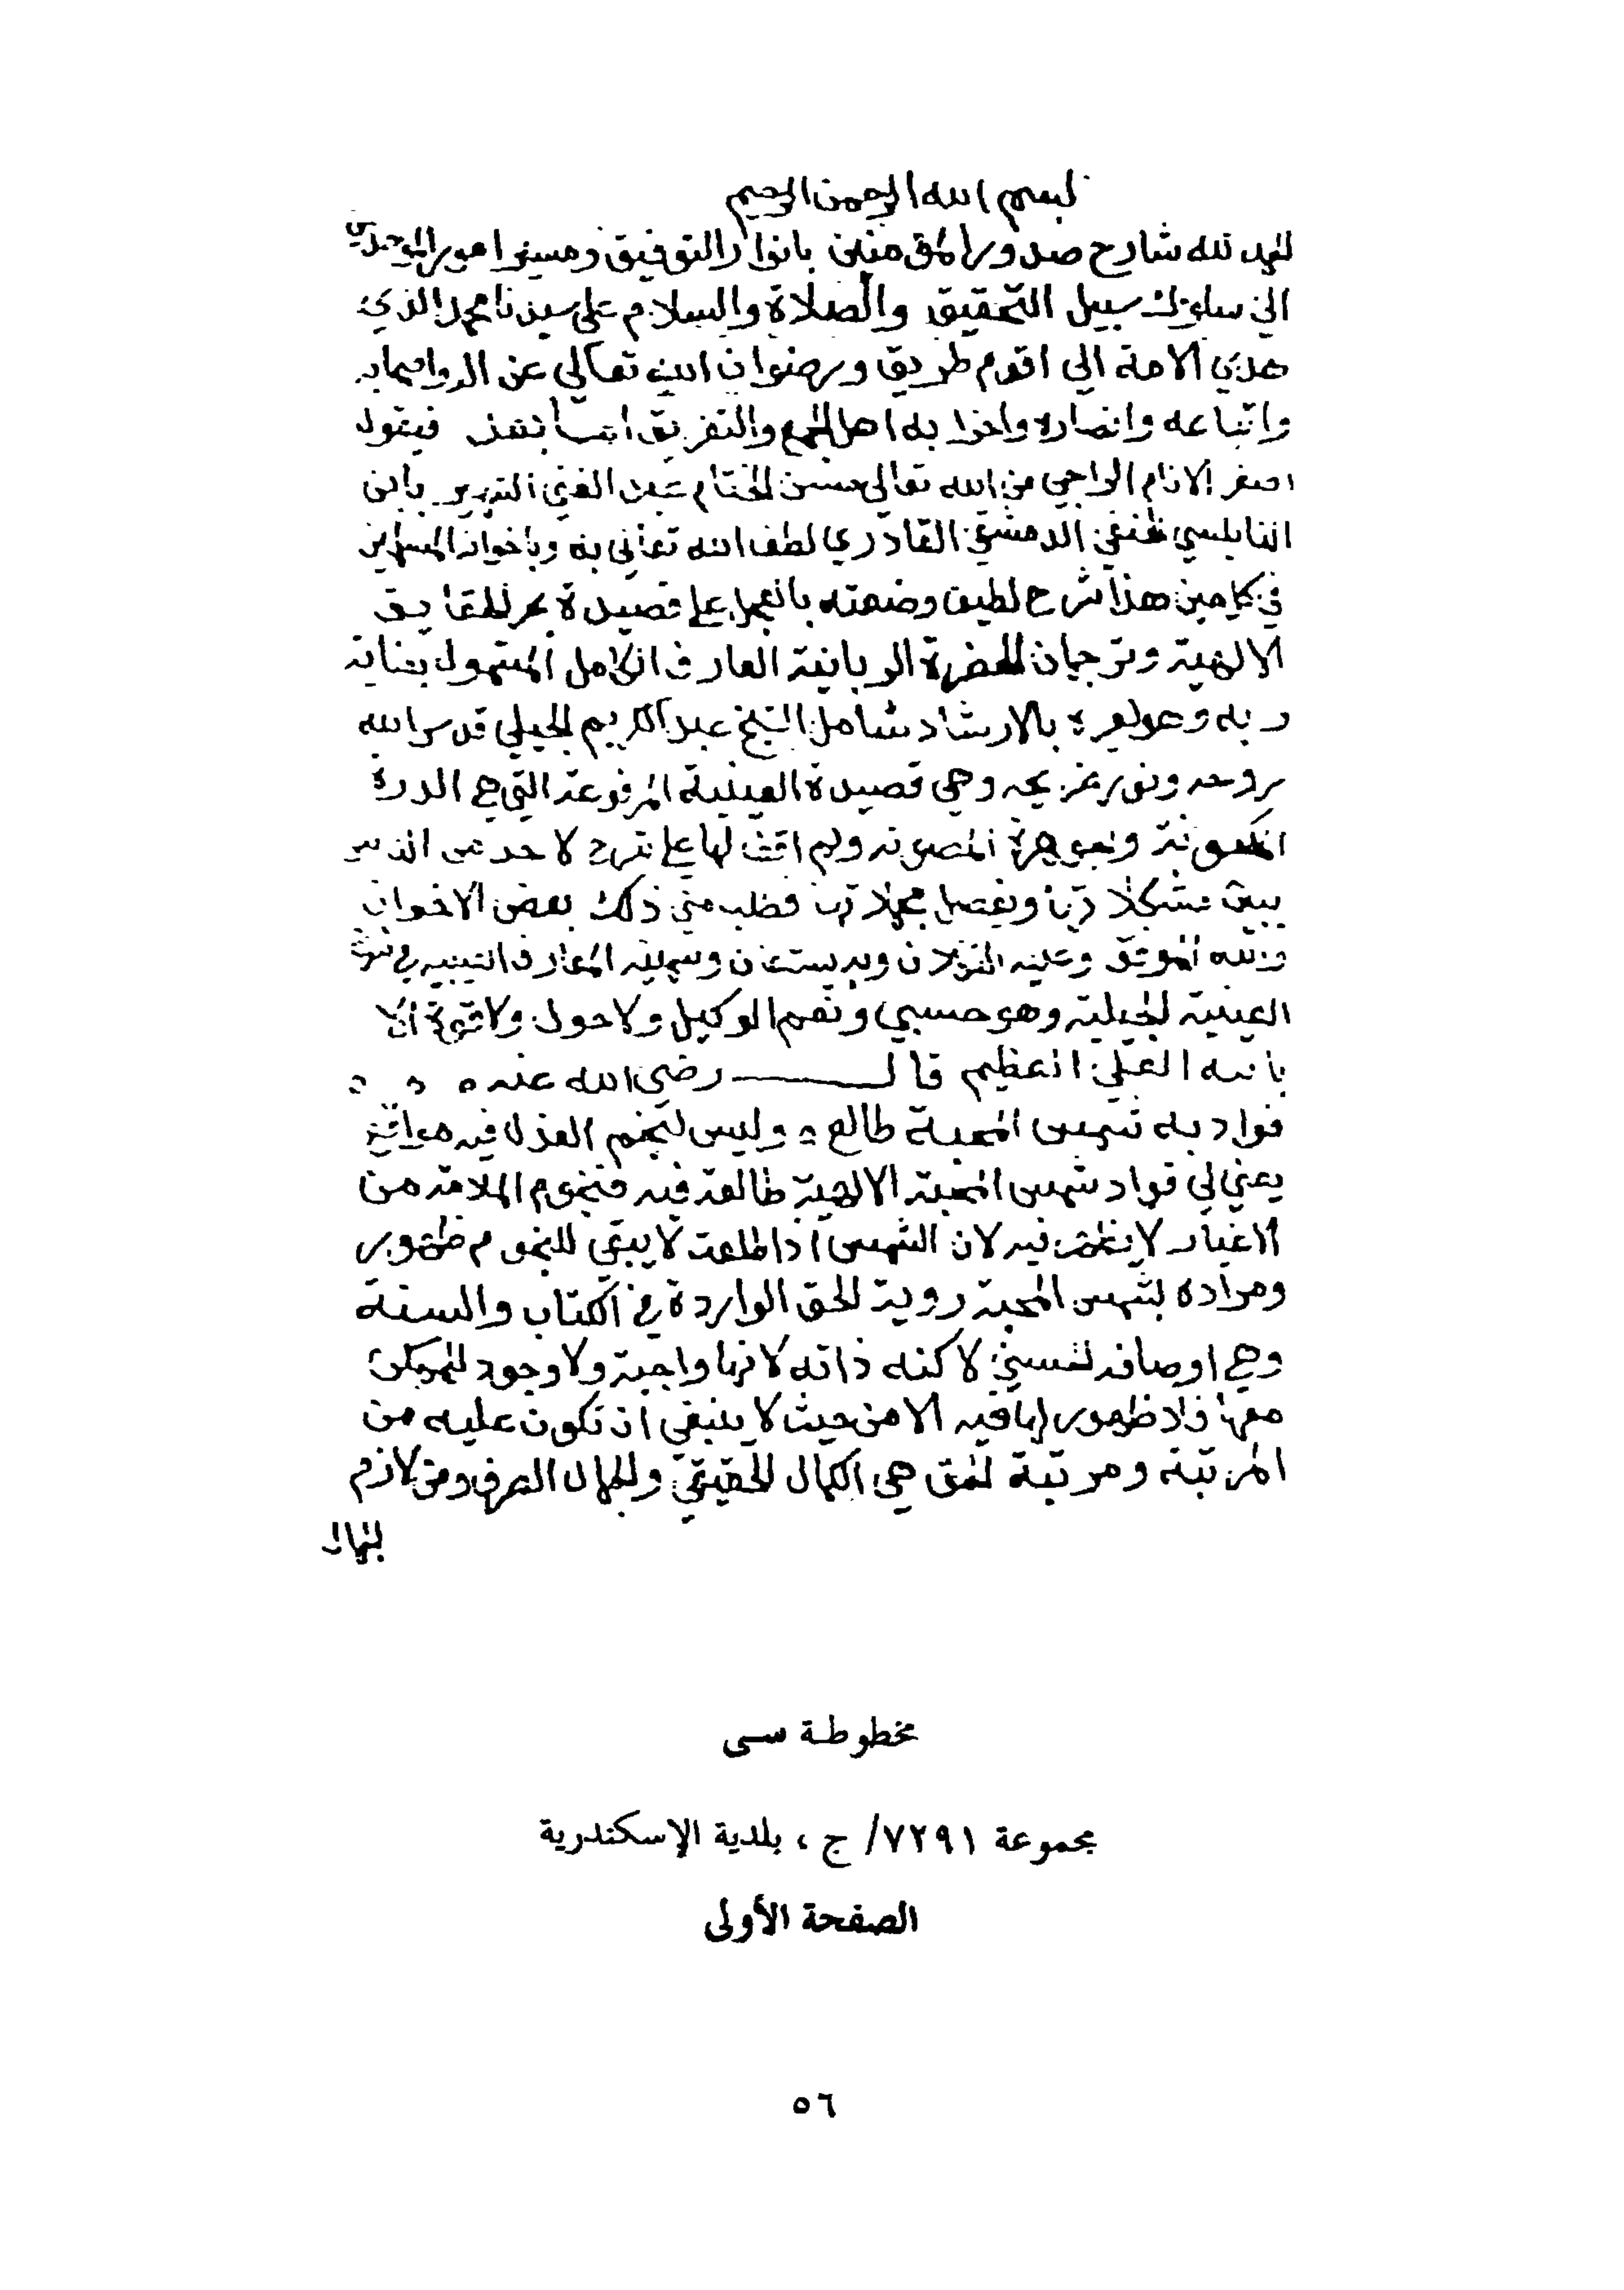 بسم الله الرحمن الرحيم
الحمد لله شارح صدور المؤمنين بانوار التوفيق وميسر امور الموحدين
الي سلوك سبيل التحقيق والصلاة والسلام علي سيدنا محمد الذي
هدي الامة الي اقوم طريق ورضوان الله تعالي عن اله واصحابه
واتباعه وانصاره واحزابه اهل الجمع والتفريق اما بعد فيقول
اصغر الانام الراجي من الله تعالي حسن الختام عبد الغني الشهير بابن
النابلسي الحنفي الدمشقي القادري لطف الله تعالي به وباخوانه المسلمين
في كل حين هذا شرح لطيف وضعته بالعجل علي قصيدة بحر الحقايق
الالهية وترجمان الحضرة الربانية العارف الكامل المشمول بعناية
ربه وهو لغيره بالارشاد شامل الشيخ عبد الكريم الجيلي قدس الله
روحه ونور ضريحه وهي قصيدة العينية المرفوعة التي هي الدرة
المكنونة والجوهرة المصونه ولم اقف لها علي شرح لاحد من الناس
يبين مشكلاتها ويفصل مجملاتها فطلب مني ذلك بعض الاخوان
والله الموفق وعليه التكلان وبه يستعان وسميته المعارف الغيبيه في شرح
العينية الجيلية وهو حسبي ونعم الوكيل ولا حول ولا قوة الا
بالله العلي العظيم قال رضي الله عنه
فواد به شمس المحبة طالع وليس لنجم العذل فيه مواقع
يعني لي فواد شمس المحبة الالهية طالعة فيه فنجوم الملامة من
الاغيار لا تظهر فيه لان الشمس اذا طلعت لا يبقي للنجوم ظهور
ومراده بشمس المحبة روية الحق الواردة في الكتاب والسنة
وهي اوصافه لنفسه لا كنه ذاته لانها واجبة ولا وجود للممكن
معها فلا ظهور لها فيه الا من حيث لا ينبغي ان تكون عليه من
المرتبة ومرتبة الحق هي الكمال الحقيقي والجمال الصرف ومن لازم
الجمال
مخطوطة سى
مجموعة ٧٢٩١/ ج ، بلدية الإسكندرية
الصفحة الأولى
٥٦